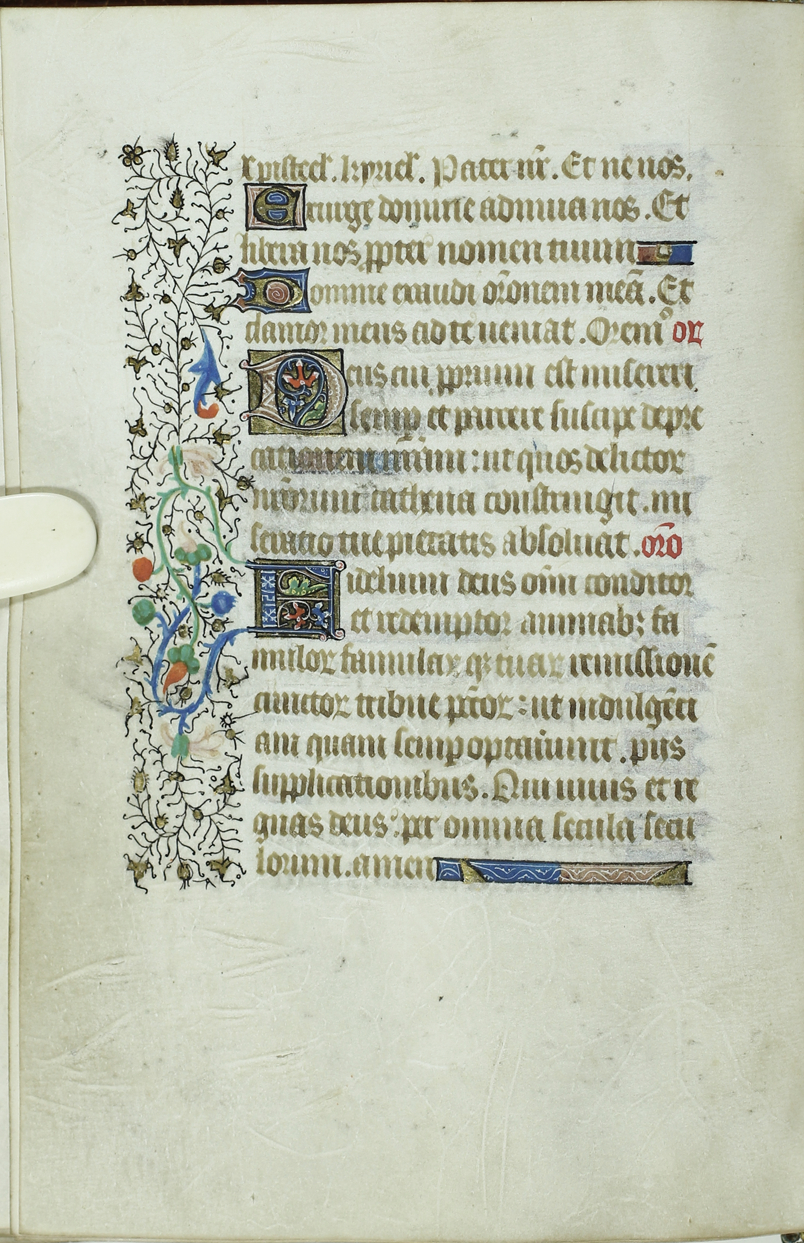 xpisteel̄. kyriel̄. Pater nr̄. Et ne nos.
Exurge domine adiuua nos. Et
libera nos ꝓpter nomen tuum
Domine exaudi or̄onem meā. Et
clamor meus ad te ueniat. Orem⁹ or
Deus cui ꝓprium est misereri
semꝑ et parcere suscipe depre
cationem nr̄am: ut quos delictoꝝ
nr̄orum cathena constringit. mi
seratio tue pietatis absoluat. oro
Fidelium deus oīm conditor
et redemptor animabꝫ fa
muloꝝ famulaꝝ qꝫ tuaꝝ remissionē
cunctoꝝ tribue pc̄toꝝ: ut indulgēti
am quam semꝑ optauerunt. piis
supplicationibus. Qui uiuis et re
gnas deus: per omnia secula secu
lorum. amen